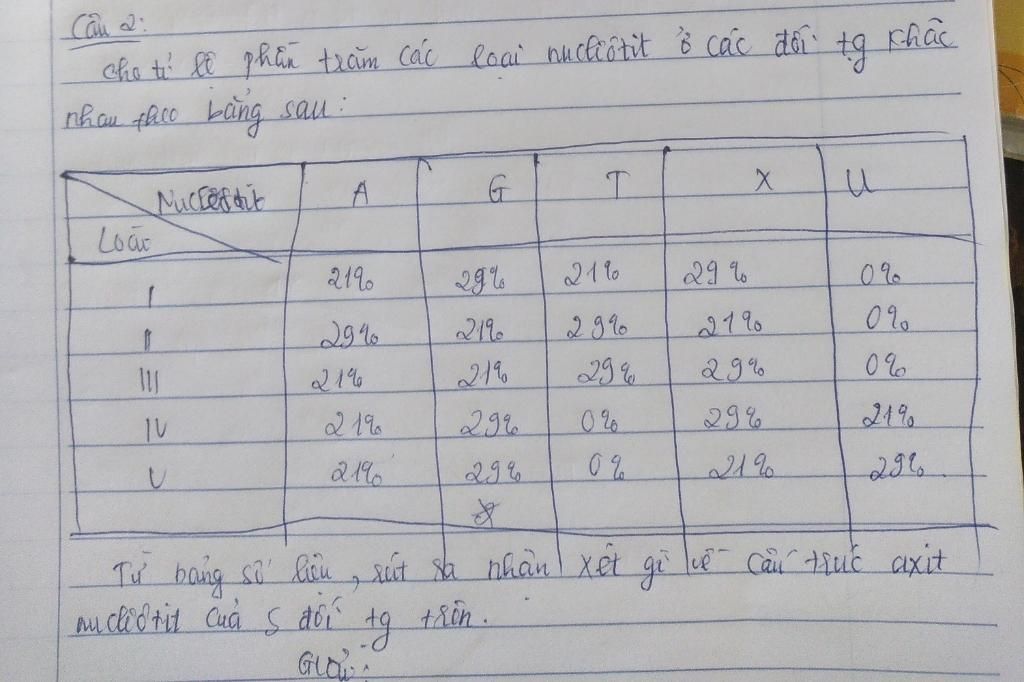 Câu 2:
cho tỉ lệ phần trăm các loại nuclêôtit ở các đối tg khác
nhau theo bảng sau:
Nuclêôtit A G T X U
Loài
I 21% 29% 21% 29% 0%
II 29% 21% 29% 21% 0%
III 21% 21% 29% 29% 0%
IV 21% 29% 0% 29% 21%
V 21% 29% 0% 21% 29%
Từ bảng số liệu, rút ra nhận xét gì về cấu trúc axit
nuclêôtit của 5 đối tg trên.
Giải: